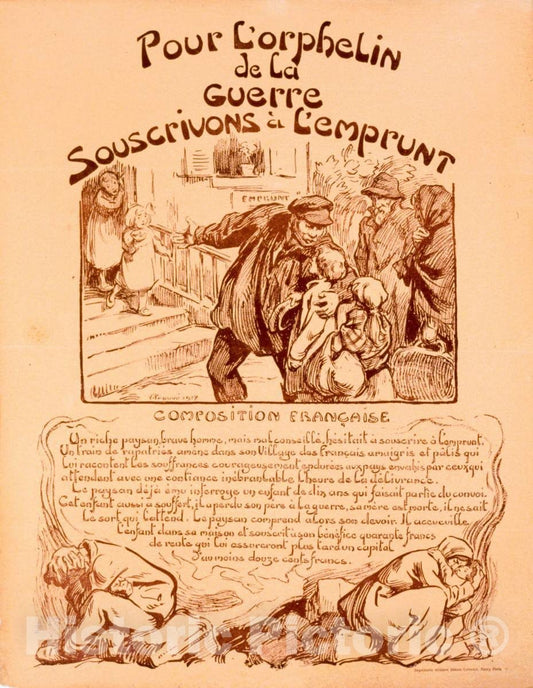 Pour L'orphelin
de La
Guerre
Souscrivons à L'emprunt
EMPRUNT
COMPOSITION FRANÇAISE
Un riche paysan, brave homme, mais mal conseillé, hésitait à souscrire à l'emprunt.
Un train de rapatriés amène dans son village des français amaigris et pâlis qui
lui racontent les souffrances courageusement endurées aux pays envahis par ceux qui
attendent avec une confiance inébranlable l'heure de la délivrance.
Le paysan déjà ému interroge un enfant de dix ans qui faisait partie du convoi.
Cet enfant aussi a souffert, il a perdu son père à la guerre, sa mère est morte, il ne sait
le sort qui l'attend. Le paysan comprend alors son devoir. Il accueille
l'enfant dans sa maison et souscrit à son bénéfice quarante francs
de rente qui lui assureront plus tard un capital
d'au moins douze cents francs.
Historic Pictoric ®